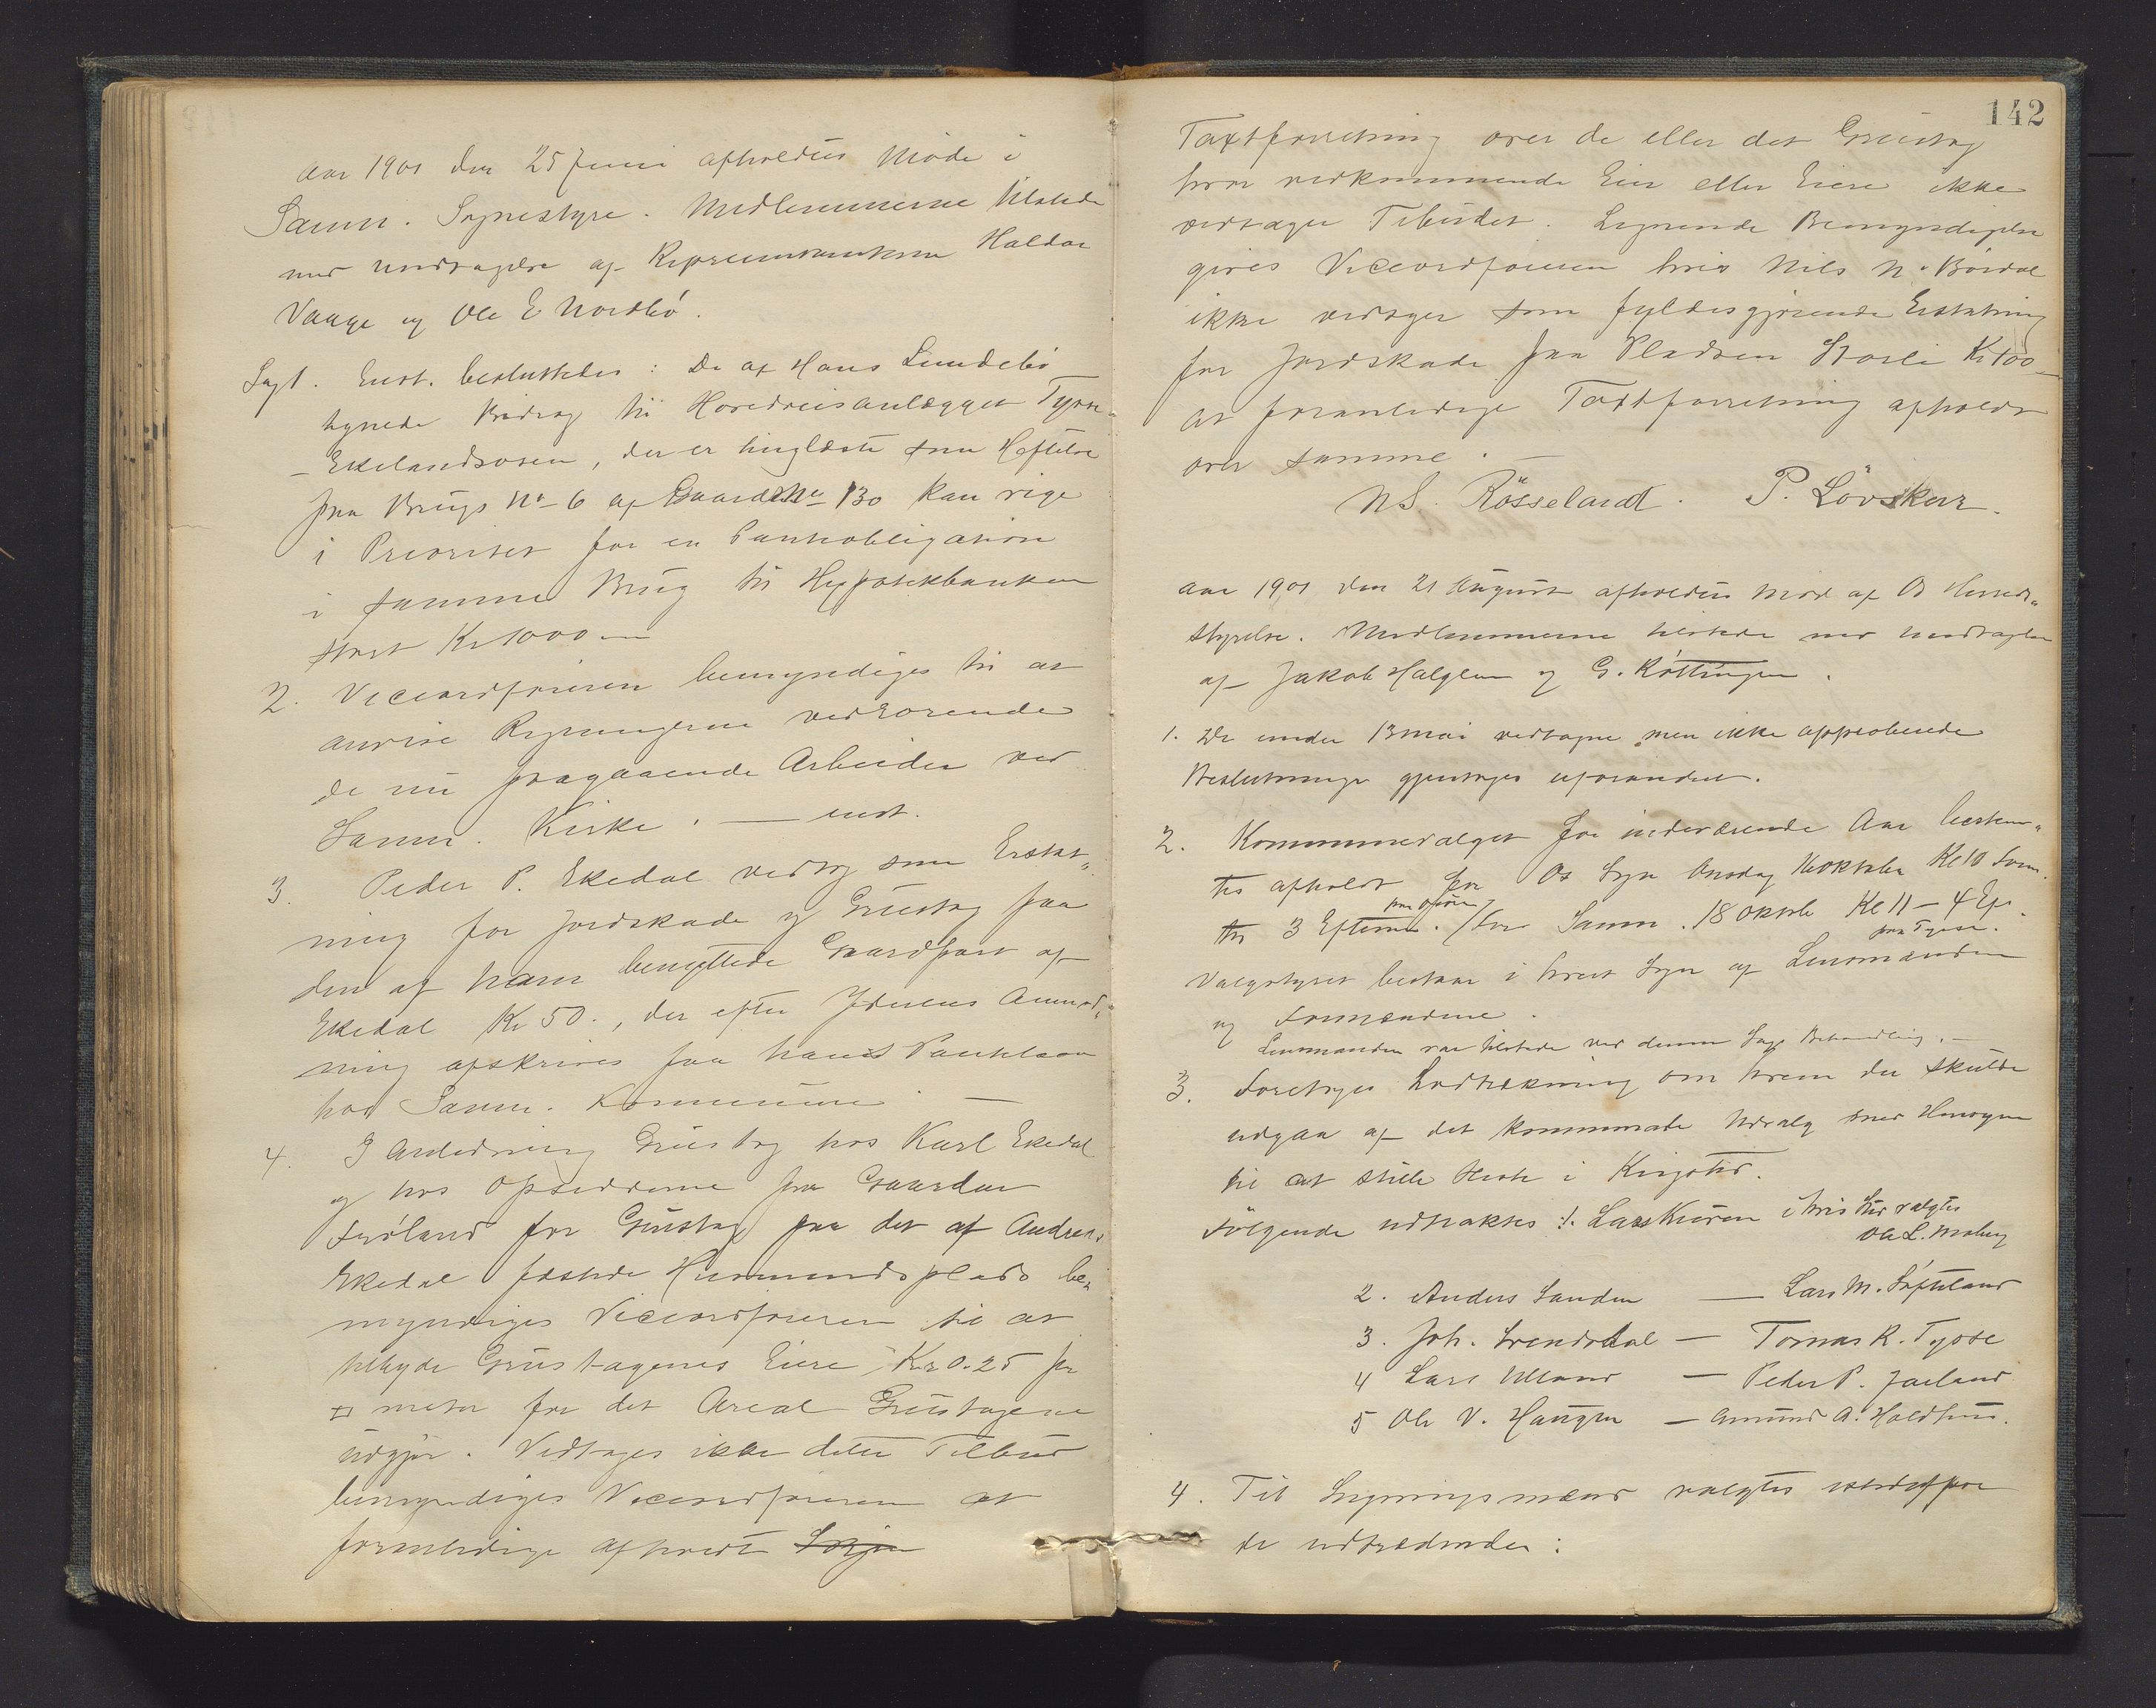 Aar 1901 den 25 Juni afholdtes Møde i
Samn. Sognestyre. Medlemmerne tilstede
med undtagelse af Repræsentanterne Haldor
Vaage og Ole E Nordbø.
Sag 1. Enst. besluttedes: De af Hans Lundebø
tegnede Bidrag til Hovedveisanlægget Tysse
- Ekelandsosen, der er tinglæste som Heftelse
paa Brugs No 6 af Gaards No 130 kan vige
i Prioritet for en Pantobligation
i samme Brug til Hypotekbanken
stor Kr 1000 —
2. Viceordføreren bemyndiges til at
anvise Regningerne vedrørende
de nu paagaaende Arbeider ved
Samn. Kirke. — enst.
3. Peder P. Ekedal vedtog som Erstat„
ning for Jordskade og Grustag paa
den af ham benyttede Gaardpart af
Ekedal Kr 50., der efter Yderens Anmod„
ning afskrives paa hans Pantelaan
hos Samn. Kommune. —
4. I Anledning Grustag hos Karl Ekedal
og hos Opsidderne paa Gaarden
Frøland for Grustag paa det af Andreas
Ekedal fæstede Husmandsplads be„
myndiges Viceordføreren til at
tilbyde Grustagenes Eiere Kr 0.25 pr
□ meter for det Areal Grustagene
udgjør. Vedtages ikke dette Tilbud
bemyndiges Viceordføreren at
foranledige afholdt
142
Taxtforretning over de eller det Grustag
hvor vedkommende Eier eller Eiere ikke
vedtager Tilbudet. Lignende Bemyndigelse
gives Viceordføreren hvis Nils N. Børdal
ikke vedtager som fyldesgjørende Erstatning
for Jordskade paa Pladsen Storli Kr 100 —
at foranledige Taxtforretning afholdt
over samme. —
N S. Røsseland. P. Løvskar.
Aar 1901 den 21 August afholdtes Møde af Os Herreds„
styrelse. Medlemmerne tilstede med undtagelse
af Jakob Hølglem og G. Røttingen.
1. De under 13 mai vedtagne men ikke approberede
Beslutninger gjentages uforandret.
2. Kommunevalget for indeværende Aar bestem„
tes afholdt for Os Sogn Onsdag 16 Oktober Kl 10 Form.
til 3 Efterm. / for Samn. 18 Oktob Kl 11 – 4 Ef.
paa Tysse.
Valgstyret bestaar i hvert Sogn af Lensmanden
og Formændene.
Lensmanden var tilstede ved denne Sags Behandling. —
3. Foretoges Lodtrækning om hvem der skulde
udgaa af det kommunale Udvalg med Hensyn
til at stille Heste i Krigstid.
Følgende udtraktes: 1. Lars Kuven i hvis Sted valgtes
Ole L. Moberg
2. Anders Sanden — Lars M. Søfteland
3. Joh. Svendsdal — Tomas R. Tysse
4 Lars Ulland — Peder P. Jarland
5 Ole V. Haugen — Amund A. Holdhus.
4. Til Ligningsmænd valgtes istedetfor
de udtrædende: